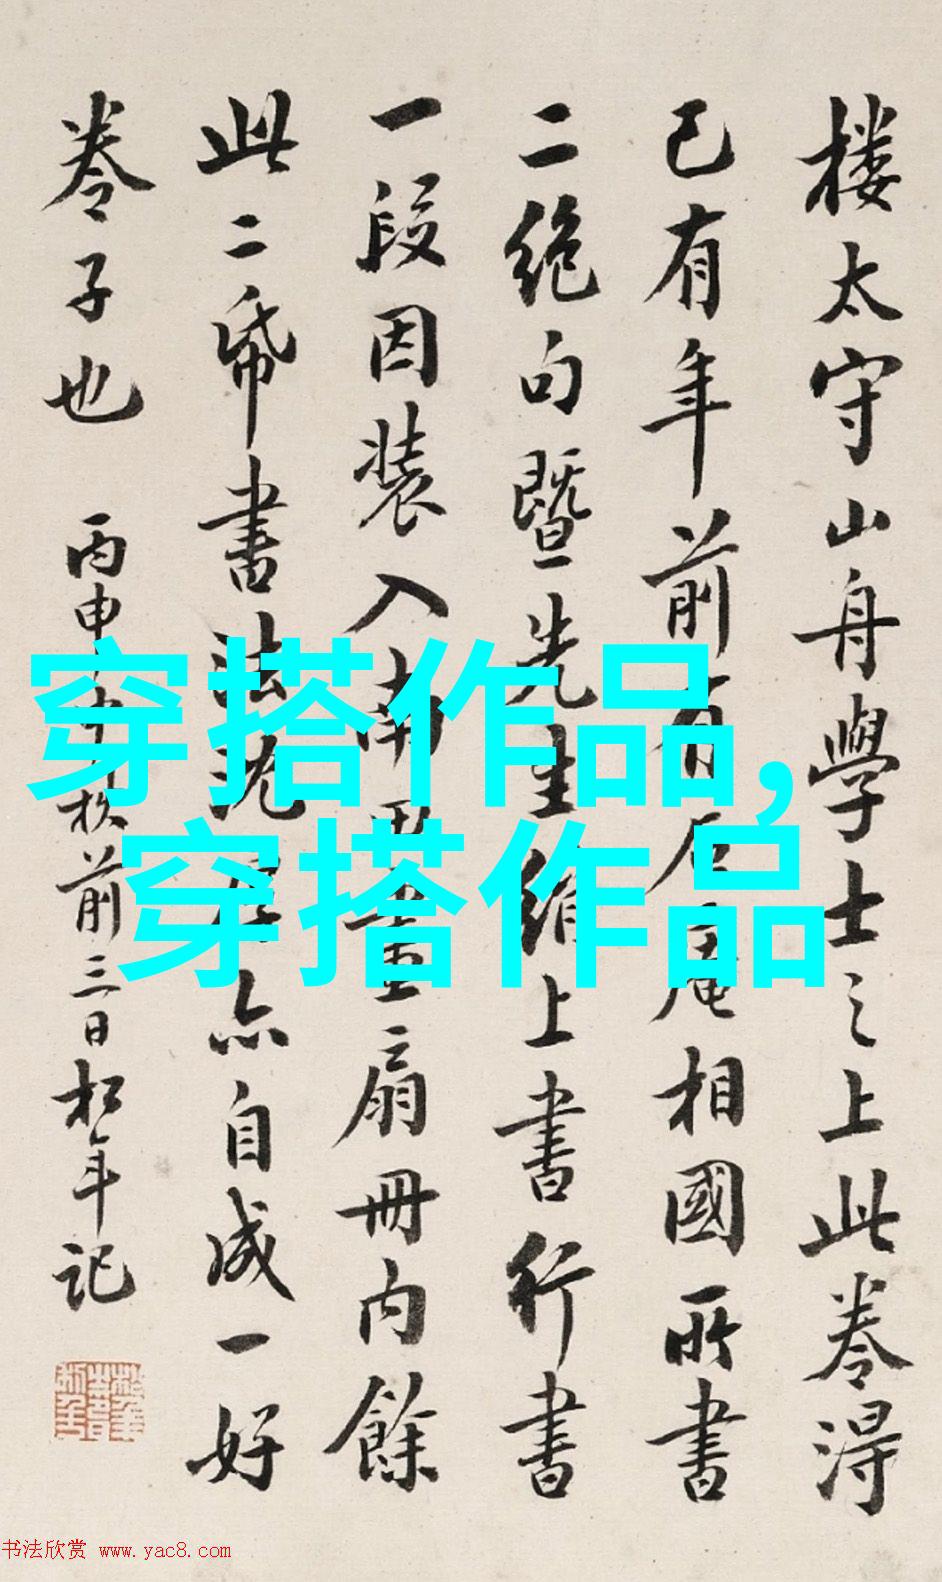 楼太守山舟學士之上此卷得
已有年前有石庵相國所書
二絶句暨先生絹上書行書
一段因装入南田畫扇冊内餘
此二帋書法沈厚亦自成一好
卷子也
丙申中秋前三日松年記
穿搭作品,
穿搭作品
书法欣赏 www.yac8.com